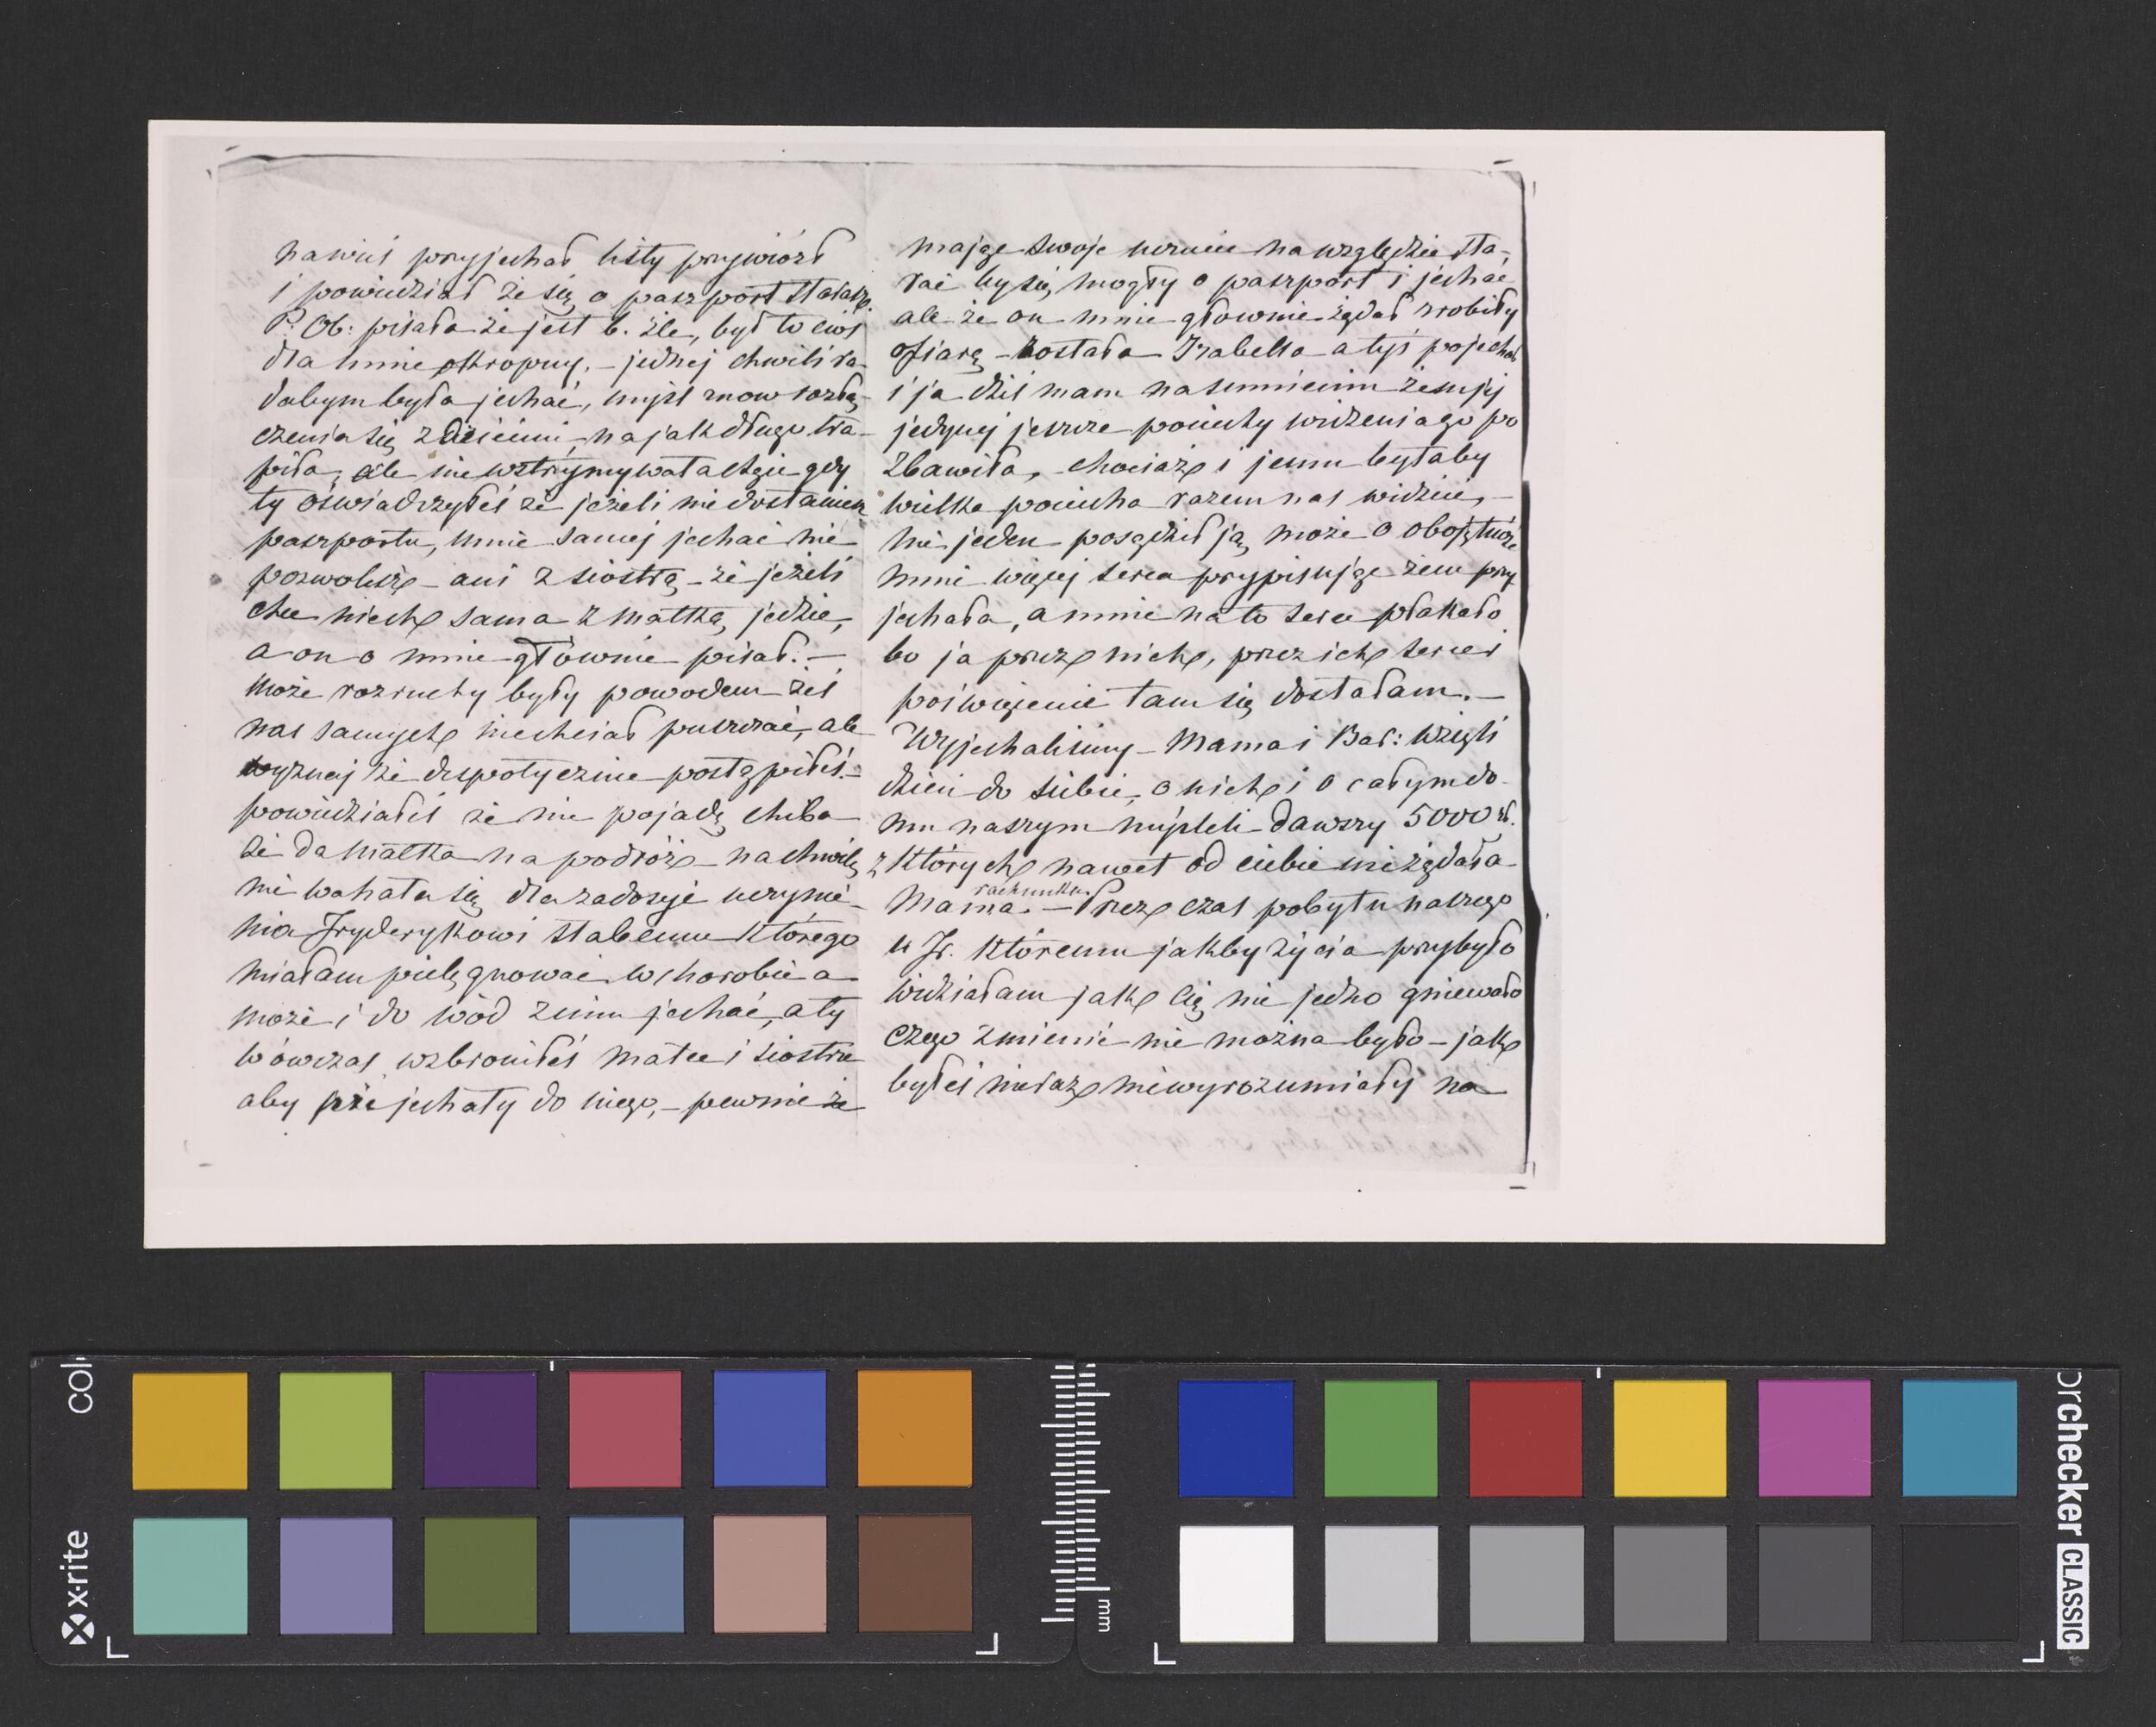 na wieś przyjechał listy przywiózł
i powiedział że się o paszport starasz.
P. Ob: pisała że jest b. źle, był to cios
dla mnie okropny, – jednej chwili ra-
dabym była jechać, myśl znow rozłą-
czenia się z dziećmi, na jak długo tra-
piła, ale nie wstrzymywała chęci gdy
ty oświadczyłeś że jeżeli nie dostaniem
paszportu, mnie samej jechać nie
pozwolisz – ani z siostrą – że jeżeli
chce niech sama z matką jedzie,
a on o mnie głównie pisał. –
Może rozruchy były powodem żeś
nas samych niechciał puszczać, ale
wyznaj że despotycznie postąpiłeś. –
powiedziałeś że nie pojadę chiba
że da matka na podróż – na chwilę
nie wahała się dla zadosyć uczynie-
nia Fryderykowi słabemu którego
miałam pielęgnować w chorobie a
może i do wód z nim jechać, a ty
wówczas wzbroniłeś matce i siostrze
aby jechały do niego, – pewnie że
mając swoje uczucie na względzie sta-
rać by się mogły o paszport i jechać
ale że on mnie głownie żądał zrobiły
ofiarę – została Izabella a tyś pojechał
i ja dziś mam na sumnieniu żem jej
jedynej jeszcze pociechy widzenia go po
zbawiła, chociaż i jemu byłaby
wielka pociecha razem nas widzieć, –
nie jeden posądził ją może o obojętność
mnie więcej serca przypisując żem przy
jechała, a mnie na to serce płakało
bo ja przez nich, przez ich serca i
poświęcenie tam się dostałam. –
Wyjechaliśmy – Mama i Bar: wzięli
dzieci do siebie, o nich i o całym do-
mu naszym myśleli – dawszy 5000 zł.
z których nawet od ciebie nie żądała
rachunku
Mama. – Przez czas pobytu naszego
u Fr. któremu jakby życia przybyło
widziałam jak Cię nie jedno gniewało
czego zmienić nie można było – jak
byłeś nieraz niewyrozumiały na